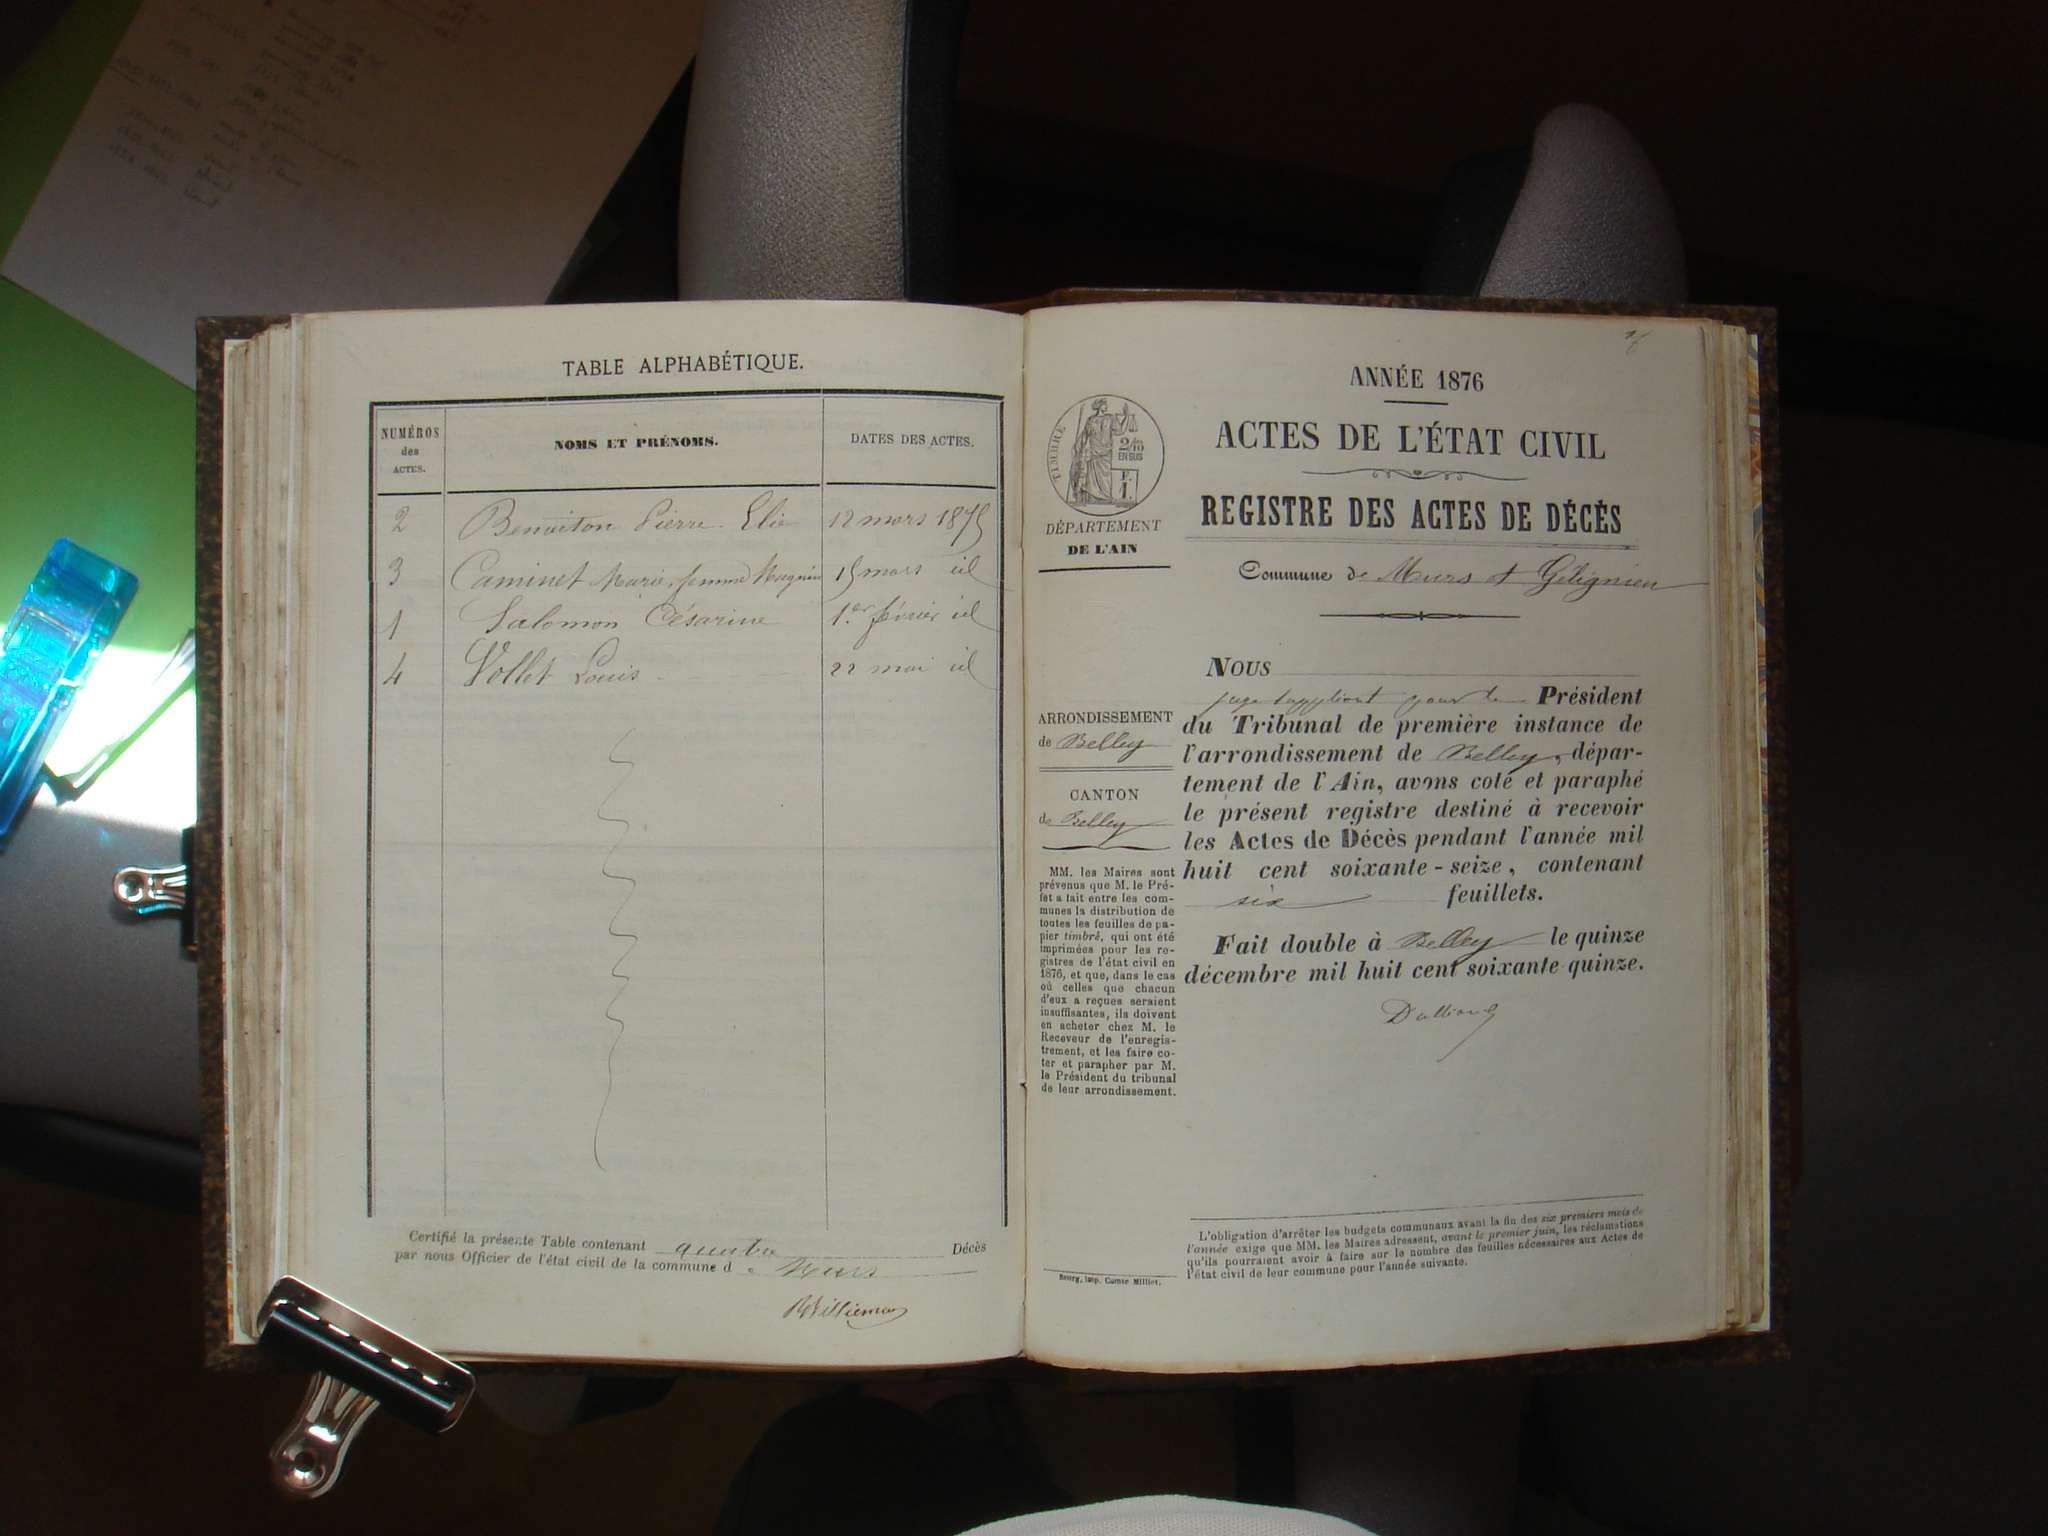 TABLE ALPHABÉTIQUE.
NUMÉROS des ACTES.
NOMS ET PRÉNOMS.
DATES DES ACTES.
2 Benoiton Pierre Elie 12 mars 1875
3 Caminet Marie, femme Mugnier 15 mars id
1 Salomon Césarine 1er février id
4 Vollet Louis 22 mai id
Certifié la présente Table contenant quatre Décès
par nous Officier de l'état civil de la commune de Murs
ANNÉE 1876
ACTES DE L'ÉTAT CIVIL
REGISTRE DES ACTES DE DÉCÈS
Commune de Murs et Gélignieu
TIMBRE
2/10
EN SUS
DÉPARTEMENT
DE L'AIN
ARRONDISSEMENT
de Belley
CANTON
de Belley
MM. les Maires sont
prévenus que M. le Pré-
fet a fait entre les com-
munes la distribution de
toutes les feuilles de pa-
pier timbré, qui ont été
imprimées pour les re-
gistres de l'état civil en
1876, et que, dans le cas
où celles que chacun
d'eux a reçues seraient
insuffisantes, ils doivent
en acheter chez M. le
Receveur de l'enregis-
trement, et les faire co-
ter et parapher par M.
le Président du tribunal
de leur arrondissement.
Bourg, imp. Comte Milliet.
NOUS
juge suppléant pour le Président
du Tribunal de première instance de
l'arrondissement de Belley, dépar-
tement de l'Ain, avons coté et paraphé
le présent registre destiné à recevoir
les Actes de Décès pendant l'année mil
huit cent soixante-seize, contenant
six feuillets.
Fait double à Belley le quinze
décembre mil huit cent soixante-quinze.
L'obligation d'arrêter les budgets communaux avant la fin des six premiers mois de
l'année exige que MM. les Maires adressent, avant le premier juin, les réclamations
qu'ils pourraient avoir à faire sur le nombre des feuilles nécessaires aux Actes de
l'état civil de leur commune pour l'année suivante.